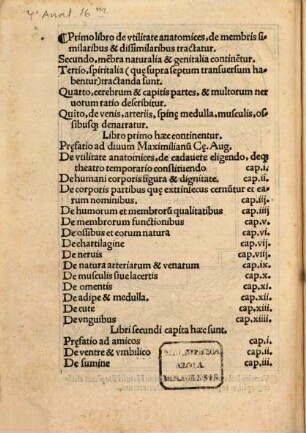 ¶Primo libro de vtilitate anatomices, de membris si
milaribus & dissimilaribus tractatur.
Secundo, mēbra naturalia & genitalia continētur.
Tertio, spiritalia (que supra septum transuersum ha
bentur) tractanda sunt.
Quarto, cerebrum & capitis partes, & multorum ner
uorum ratio describitur.
Quīto, de venis, arteriis, spinę medulla, musculis, os
sibusqꝫ denarratur.
Libro primo hæc continentur.
Pręfatio ad diuum Maximilianū Cę. Aug.
De vtilitate anatomices, de cadauere eligendo, deqꝫ
theatro temporario constituendo cap.i.
De humani corporis figura & dignitate. cap.ii.
De corporis partibus quę extrinsecus cernūtur et ea
rum nominibus, cap.iij.
De humorum et membrorū qualitatibus cap.iiij
De membrorum functionibus cap.v.
De ossibus et eorum natura cap.vi.
De chartilagine cap.vij.
De neruis cap.viij.
De natura arteriarum & venarum cap.ix.
De musculis siue lacertis cap.x.
De omentis cap.xi.
De adipe & medulla. cap.xii.
De cute cap.xiii.
De vnguibus cap.xiiii.
Libri secundi capita hæc sunt.
Pręfatio ad amicos cap.i.
De ventre & vmbilico cap.ii.
De sumine cap.iii.